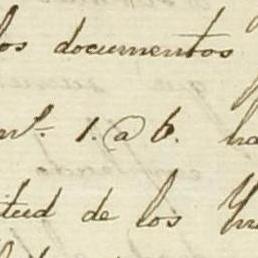 los documentos
1. a 6. ha
itud de los